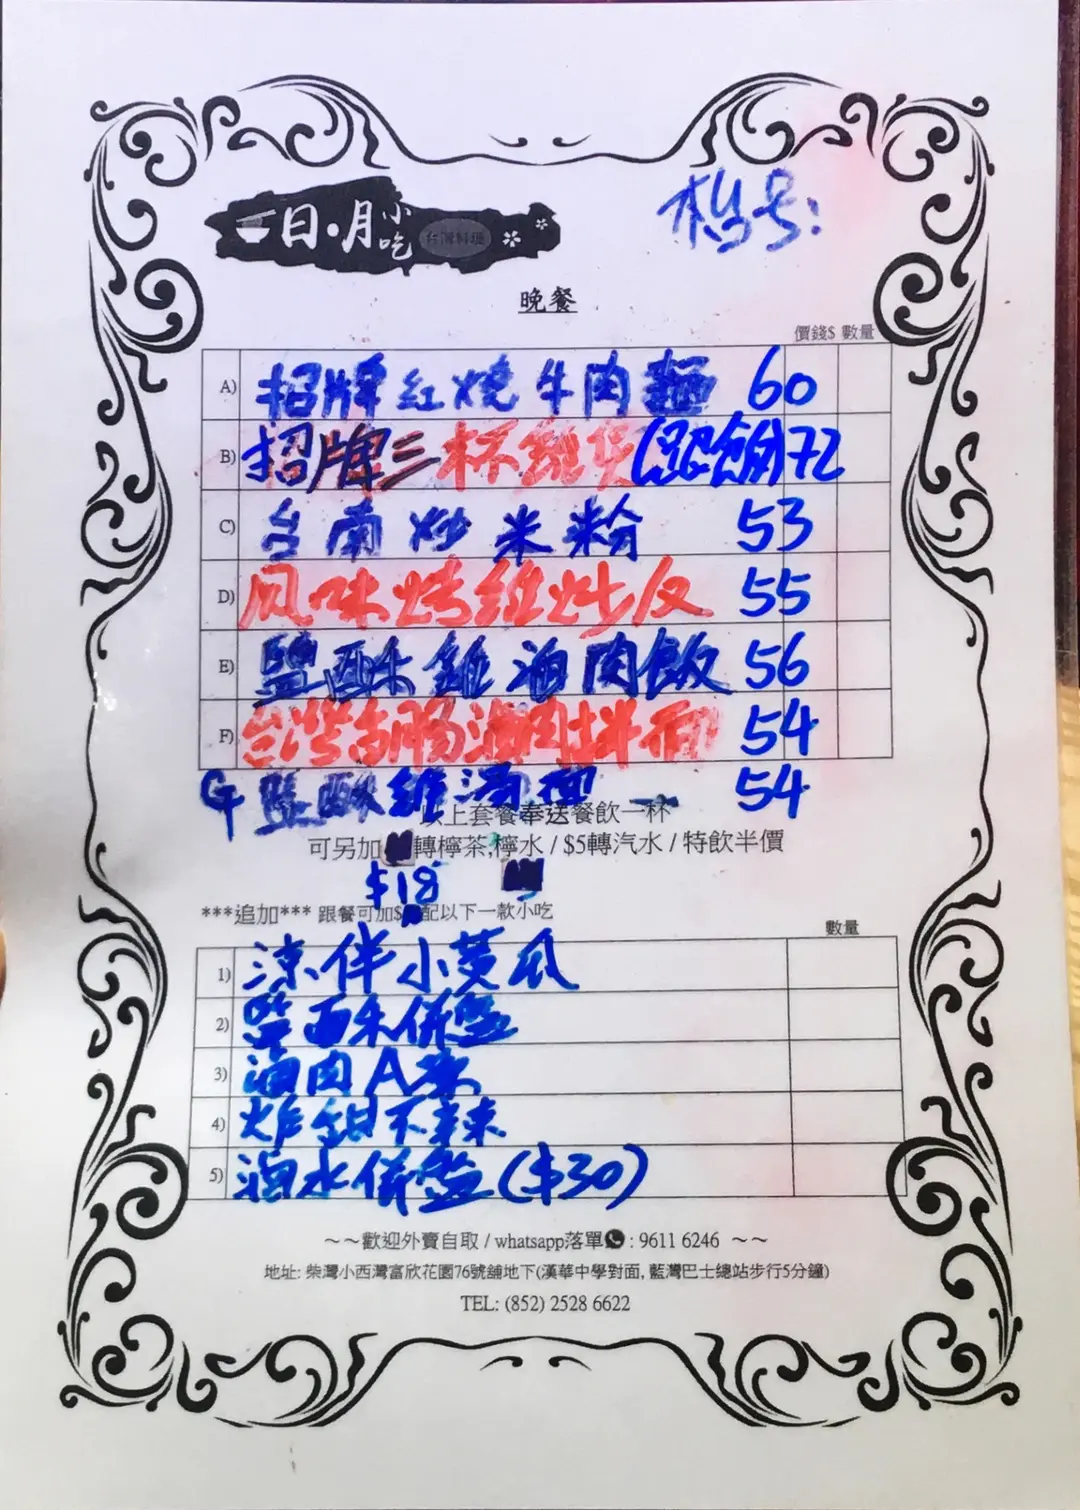 日·月小吃 台灣料理
枱号:
晚餐
價錢$ 數量
A) 招牌紅燒牛肉麵 60
B) 招牌三杯雞煲(跟飯) 72
C) 台南炒米粉 53
D) 风味烤雞炒 55
E) 鹽酥雞滷肉飯 56
F) 台灣香腸滷肉拌面 54
G 鹽酥雞湯面 54
以上套餐奉送餐飲一杯
可另加 轉檸茶,檸水 / $5轉汽水 / 特飲半價
$18
***追加*** 跟餐可加$ 配以下一款小吃
數量
1) 涼伴小黃瓜
2) 鹽酥併盤
3) 滷肉A菜
4) 炸甜不辣
5) 滷水併盤($30)
~~歡迎外賣自取 / whatsapp落單 : 9611 6246 ~~
地址: 柴灣小西灣富欣花園76號舖地下(漢華中學對面, 藍灣巴士總站步行5分鐘)
TEL: (852) 2528 6622